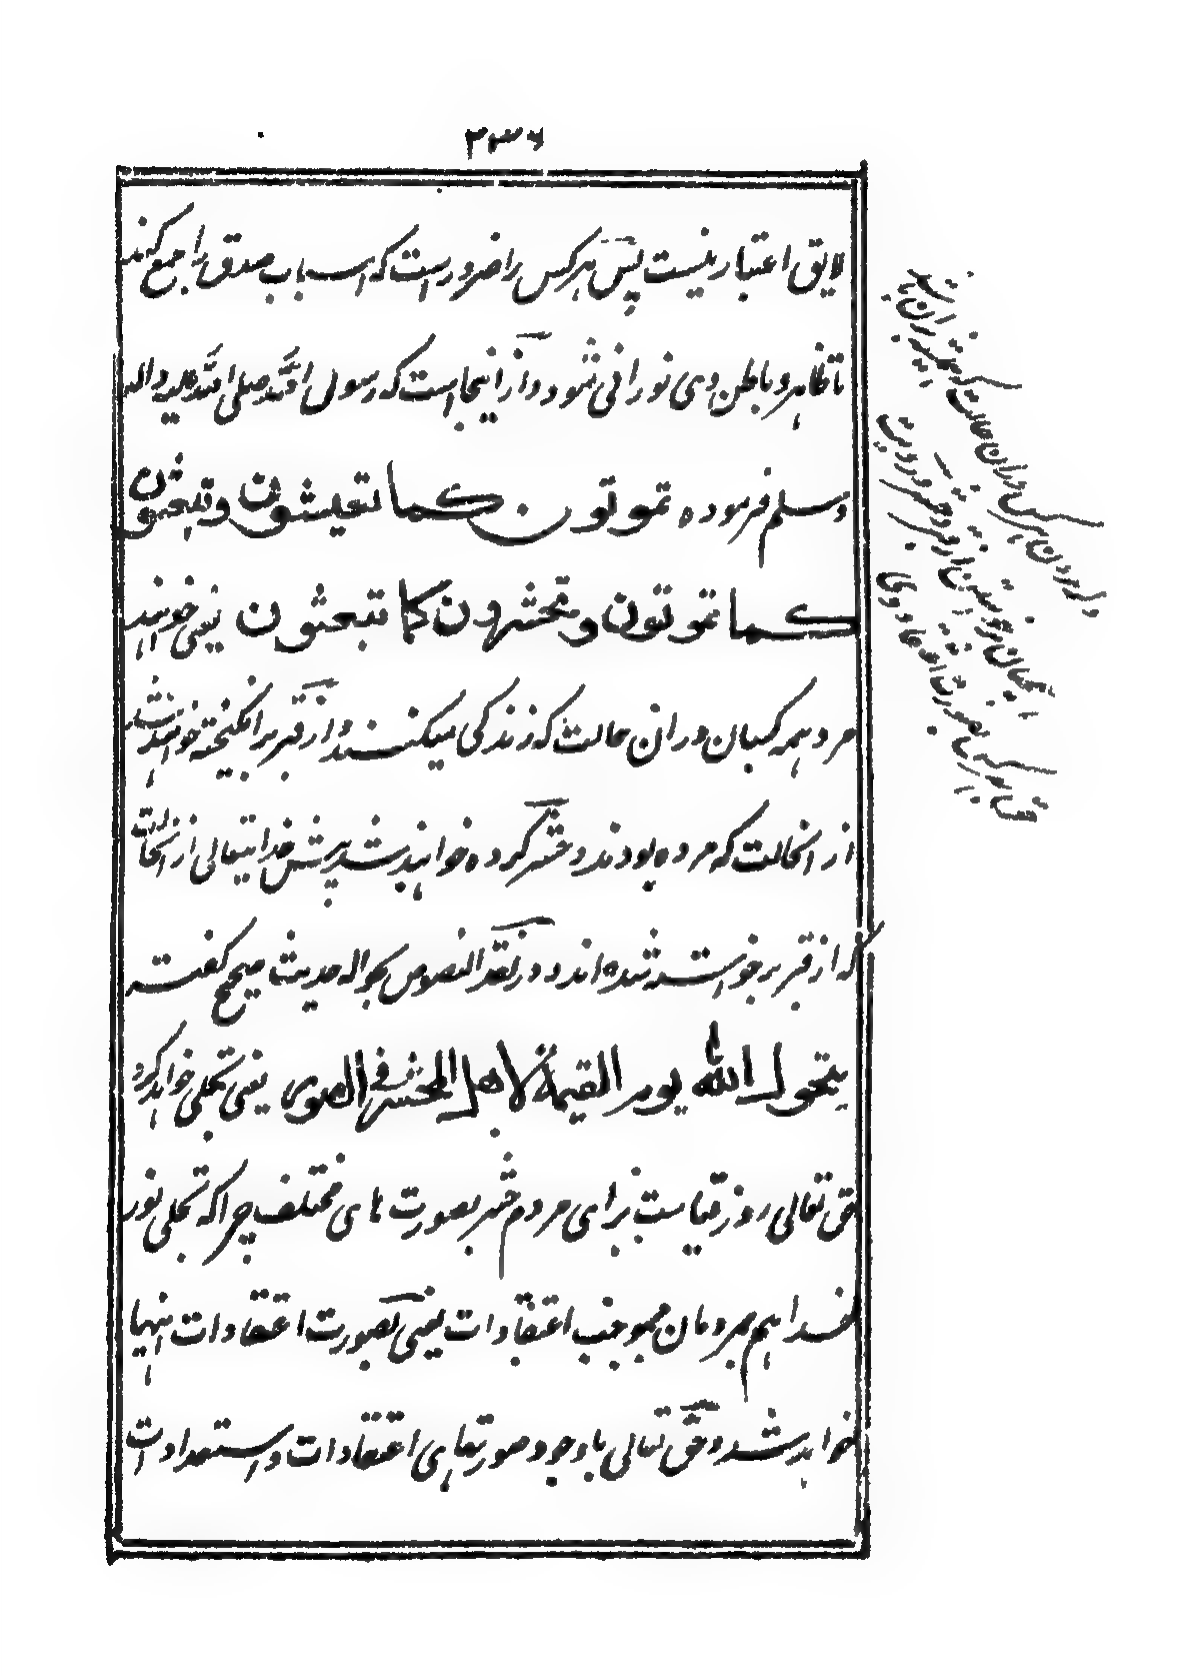 ۲۳۶
لایق اعتبار نیست پس هرکس را ضرورست که اسباب صدق را جمع کند
تا ظاهر و باطن وی نورانی شود و از اینجاست که رسول الله صلی الله علیه واله
وسلم فرموده تموتون کما تعیشون وتبعثون
کما تموتون وتحشرون کما تبعثون یعنی خواهند
مرد همه کسان در ان حالت که زندگی میکنند و از قبر برانگیخته خواهند شد
از انحالت که مرده بودند و حشر کرده خواهند شد پیش خدایتعالی از انحالت
که از قبر برخواسته شده اند و در نقد النصوص بحواله حدیث صحیح گفته
یتحول الله یوم القیمة لاهل المحشر فی الصور یعنی تجلی خواهد کرد
حق تعالی روز قیامت برای مردم حشر بصورت های مختلف چرا که تجلی نور
خدا هم بمردمان بموجب اعتقادات یعنی بصورت اعتقادات انها
خواهد شد و حق تعالی با وجود صورتهای اعتقادات و استعدادات
مردن هرکس دران حالت که